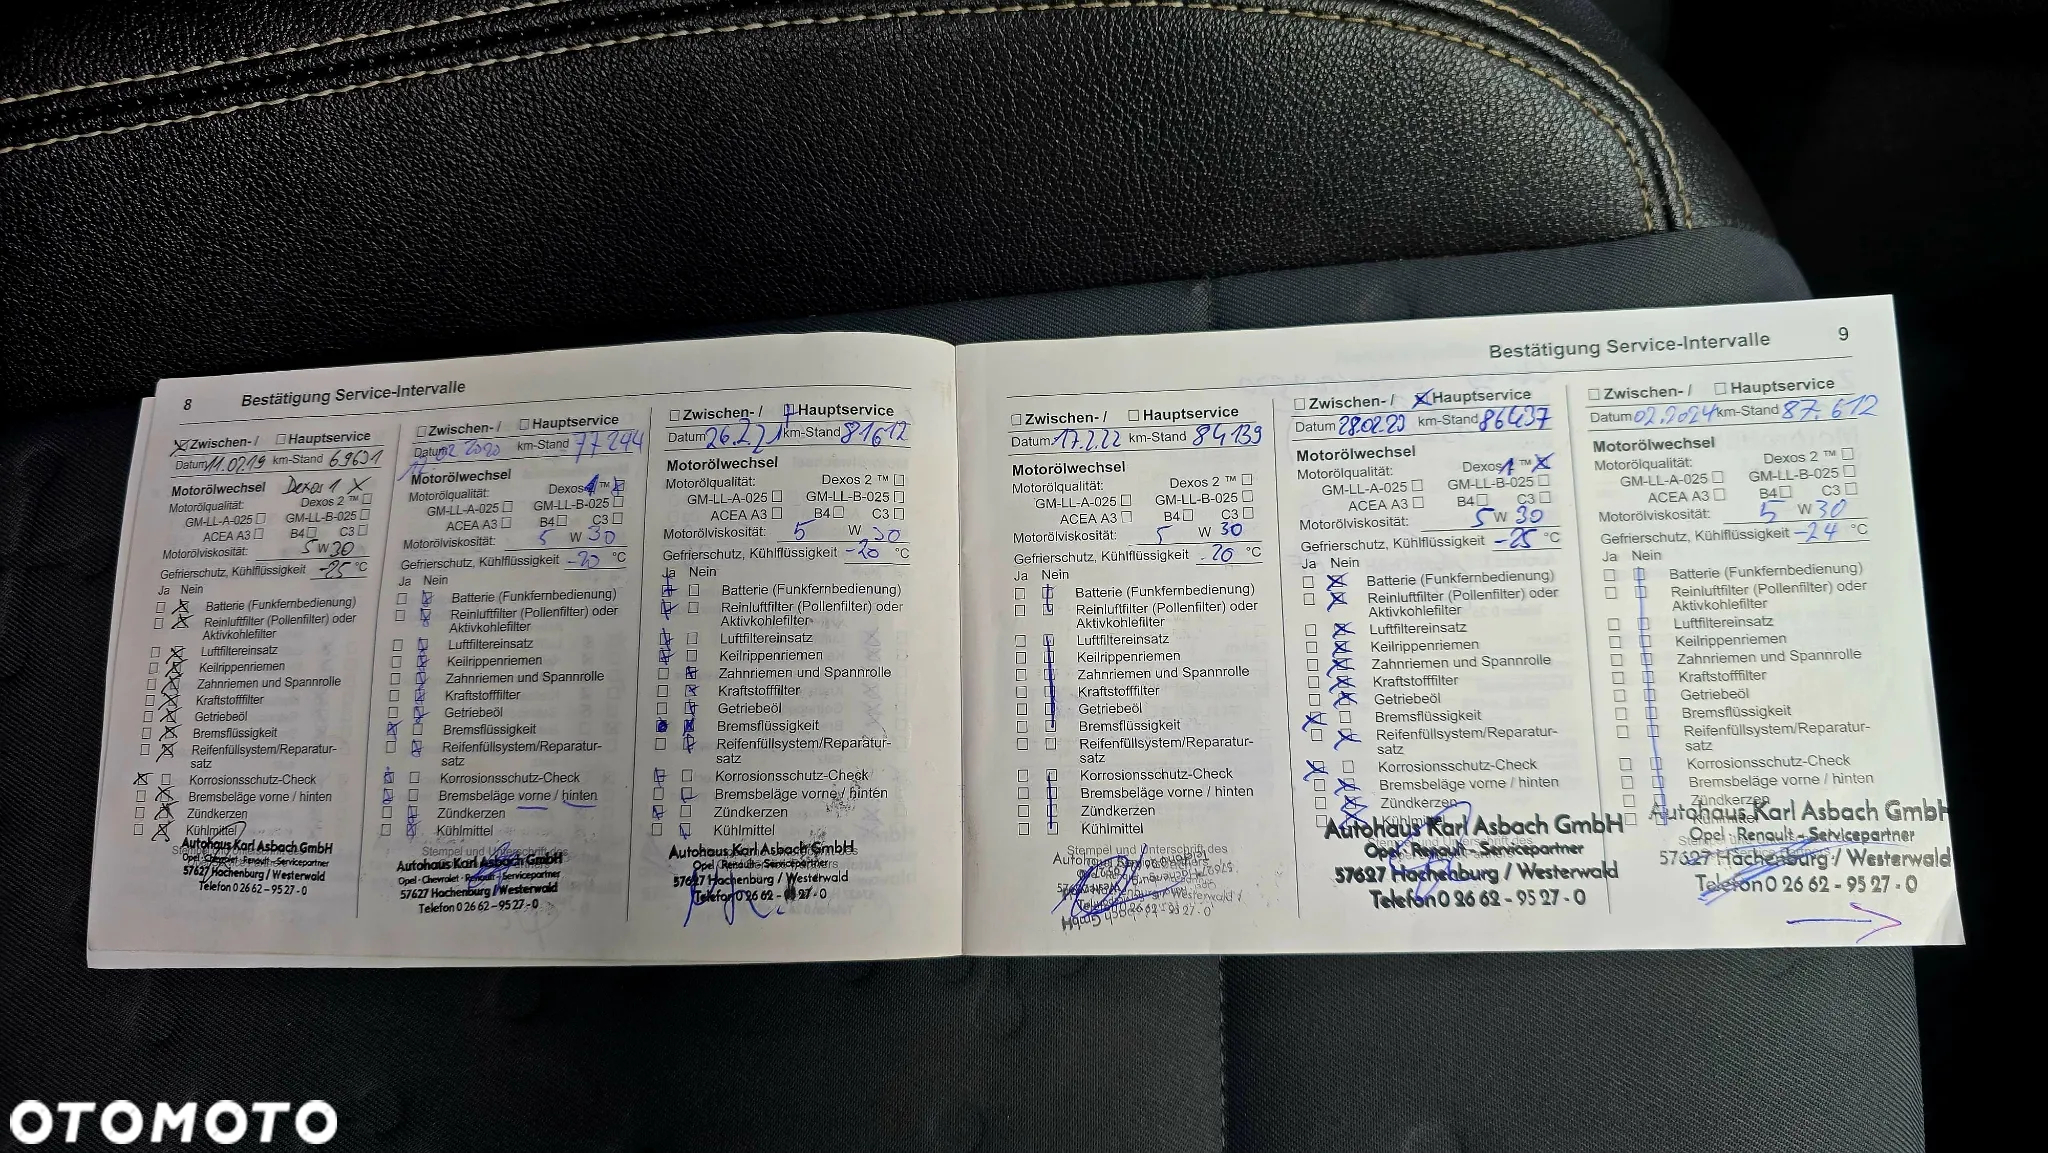 8 Bestätigung Service-Intervalle
Zwischen- / Hauptservice
Datum 11.02.19 km-Stand 69631
Motorölwechsel Dexos 1 X
Motorölqualität: Dexos 2 ™
GM-LL-A-025 GM-LL-B-025
ACEA A3 B4 C3
Motorölviskosität: 5 W 30
Gefrierschutz, Kühlflüssigkeit -25 °C
Ja Nein
Batterie (Funkfernbedienung)
Reinluftfilter (Pollenfilter) oder
Aktivkohlefilter
Luftfiltereinsatz
Keilrippenriemen
Zahnriemen und Spannrolle
Kraftstofffilter
Getriebeöl
Bremsflüssigkeit
Reifenfüllsystem/Reparatur-
satz
Korrosionsschutz-Check
Bremsbeläge vorne / hinten
Zündkerzen
Kühlmittel
Autohaus Karl Asbach GmbH
Opel - Chevrolet - Renault - Servicepartner
57627 Hachenburg / Westerwald
Telefon 0 26 62 - 95 27 - 0
Zwischen- / Hauptservice
Datum 02 2020 km-Stand 77244
Motorölwechsel
Motorölqualität: Dexos 1 ™
GM-LL-A-025 GM-LL-B-025
ACEA A3 B4 C3
Motorölviskosität: 5 W 30
Gefrierschutz, Kühlflüssigkeit -20 °C
Ja Nein
Batterie (Funkfernbedienung)
Reinluftfilter (Pollenfilter) oder
Aktivkohlefilter
Luftfiltereinsatz
Keilrippenriemen
Zahnriemen und Spannrolle
Kraftstofffilter
Getriebeöl
Bremsflüssigkeit
Reifenfüllsystem/Reparatur-
satz
Korrosionsschutz-Check
Bremsbeläge vorne / hinten
Zündkerzen
Kühlmittel
Stempel und Unterschrift des
Autohaus Karl Asbach GmbH
Opel - Chevrolet - Renault - Servicepartner
57627 Hachenburg / Westerwald
Telefon 0 26 62 - 95 27 - 0
Zwischen- / Hauptservice
Datum 26.2.21 km-Stand 81612
Motorölwechsel
Motorölqualität: Dexos 2 ™
GM-LL-A-025 GM-LL-B-025
ACEA A3 B4 C3
Motorölviskosität: 5 W 30
Gefrierschutz, Kühlflüssigkeit -20 °C
Ja Nein
Batterie (Funkfernbedienung)
Reinluftfilter (Pollenfilter) oder
Aktivkohlefilter
Luftfiltereinsatz
Keilrippenriemen
Zahnriemen und Spannrolle
Kraftstofffilter
Getriebeöl
Bremsflüssigkeit
Reifenfüllsystem/Reparatur-
satz
Korrosionsschutz-Check
Bremsbeläge vorne / hinten
Zündkerzen
Kühlmittel
Autohaus Karl Asbach GmbH
Opel - Renault - Servicepartner
57627 Hachenburg / Westerwald
Telefon 0 26 62 - 95 27 - 0
Bestätigung Service-Intervalle 9
Zwischen- / Hauptservice
Datum 17.2.22 km-Stand 84139
Motorölwechsel
Motorölqualität: Dexos 2 ™
GM-LL-A-025 GM-LL-B-025
ACEA A3 B4 C3
Motorölviskosität: 5 W 30
Gefrierschutz, Kühlflüssigkeit -20 °C
Ja Nein
Batterie (Funkfernbedienung)
Reinluftfilter (Pollenfilter) oder
Aktivkohlefilter
Luftfiltereinsatz
Keilrippenriemen
Zahnriemen und Spannrolle
Kraftstofffilter
Getriebeöl
Bremsflüssigkeit
Reifenfüllsystem/Reparatur-
satz
Korrosionsschutz-Check
Bremsbeläge vorne / hinten
Zündkerzen
Kühlmittel
Stempel und Unterschrift des
Zwischen- / X Hauptservice
Datum 28.02.23 km-Stand 86437
Motorölwechsel
Motorölqualität: Dexos 1 ™ X
GM-LL-A-025 GM-LL-B-025
ACEA A3 B4 C3
Motorölviskosität: 5 W 30
Gefrierschutz, Kühlflüssigkeit -25 °C
Ja Nein
Batterie (Funkfernbedienung)
Reinluftfilter (Pollenfilter) oder
Aktivkohlefilter
Luftfiltereinsatz
Keilrippenriemen
Zahnriemen und Spannrolle
Kraftstofffilter
Getriebeöl
Bremsflüssigkeit
Reifenfüllsystem/Reparatur-
satz
Korrosionsschutz-Check
Bremsbeläge vorne / hinten
Zündkerzen
Autohaus Karl Asbach GmbH
Opel - Renault - Servicepartner
57627 Hachenburg / Westerwald
Telefon 0 26 62 - 95 27 - 0
Zwischen- / Hauptservice
Datum 02.2024 km-Stand 87.612
Motorölwechsel
Motorölqualität: Dexos 2 ™
GM-LL-A-025 GM-LL-B-025
ACEA A3 B4 C3
Motorölviskosität: 5 W 30
Gefrierschutz, Kühlflüssigkeit -24 °C
Ja Nein
Batterie (Funkfernbedienung)
Reinluftfilter (Pollenfilter) oder
Aktivkohlefilter
Luftfiltereinsatz
Keilrippenriemen
Zahnriemen und Spannrolle
Kraftstofffilter
Getriebeöl
Bremsflüssigkeit
Reifenfüllsystem/Reparatur-
satz
Korrosionsschutz-Check
Bremsbeläge vorne / hinten
Zündkerzen
Autohaus Karl Asbach GmbH
Opel - Renault - Servicepartner
57627 Hachenburg / Westerwald
Telefon 0 26 62 - 95 27 - 0
OTOMOTO